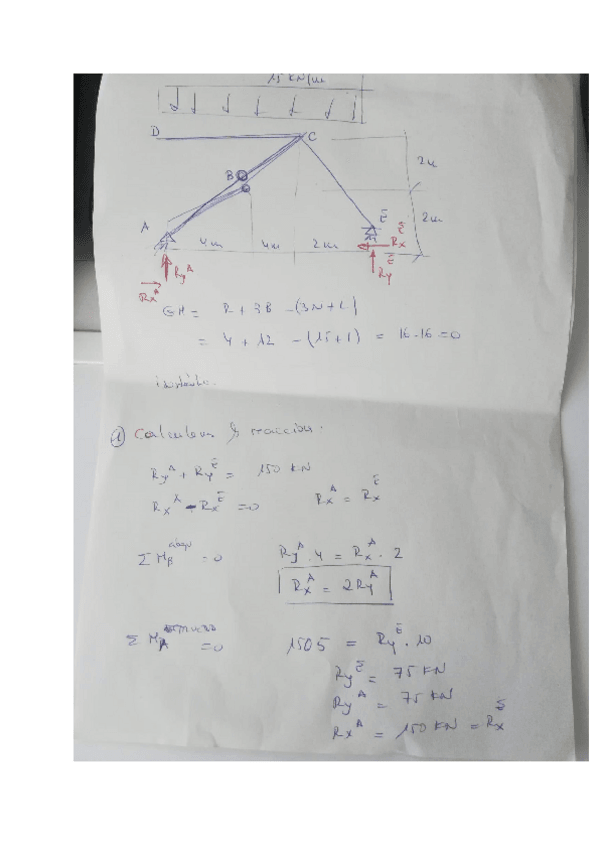 15 KN/m
D
C
2m
B
A
E
2m
4m
4m
2m
Rx^E
Ry^A
Ry^E
Rx^A
GH = R + 3B - (3N + L)
= 4 + 12 - (15+1) = 16-16 = 0
① Calculamos reacciones.
Ry^A + Ry^E = 150 KN
Rx^A - Rx^E = 0 Rx^A = Rx^E
Σ M_B = 0 Ry^A · 4 = Rx^A · 2
Rx^A = 2Ry^A
Σ M_A = 0 150 5 = Ry^E · 10
Ry^E = 75 KN
Ry^A = 75 KN
Rx^A = 150 KN = Rx^E